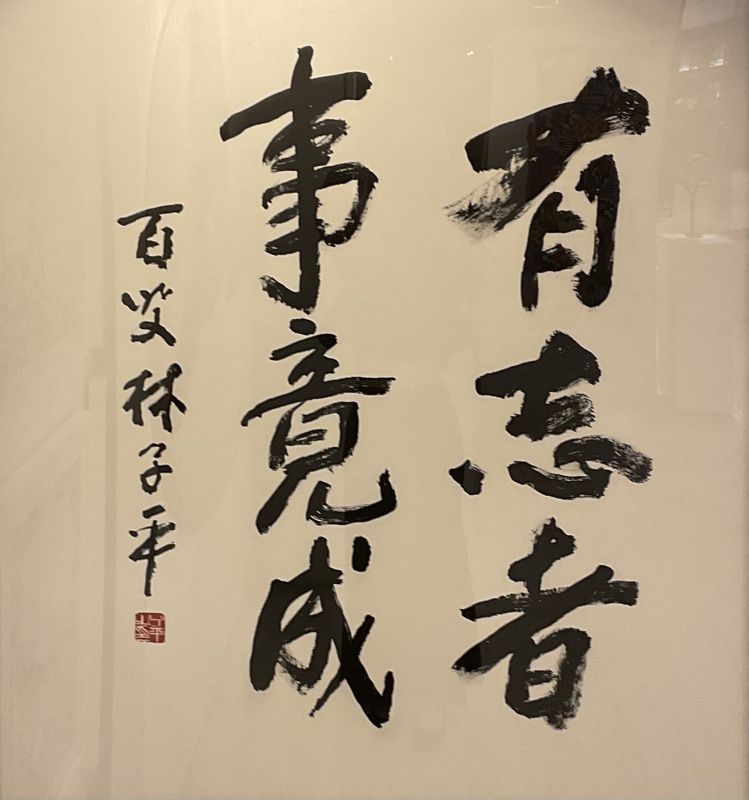 有志者
事竟成
百叟林子平